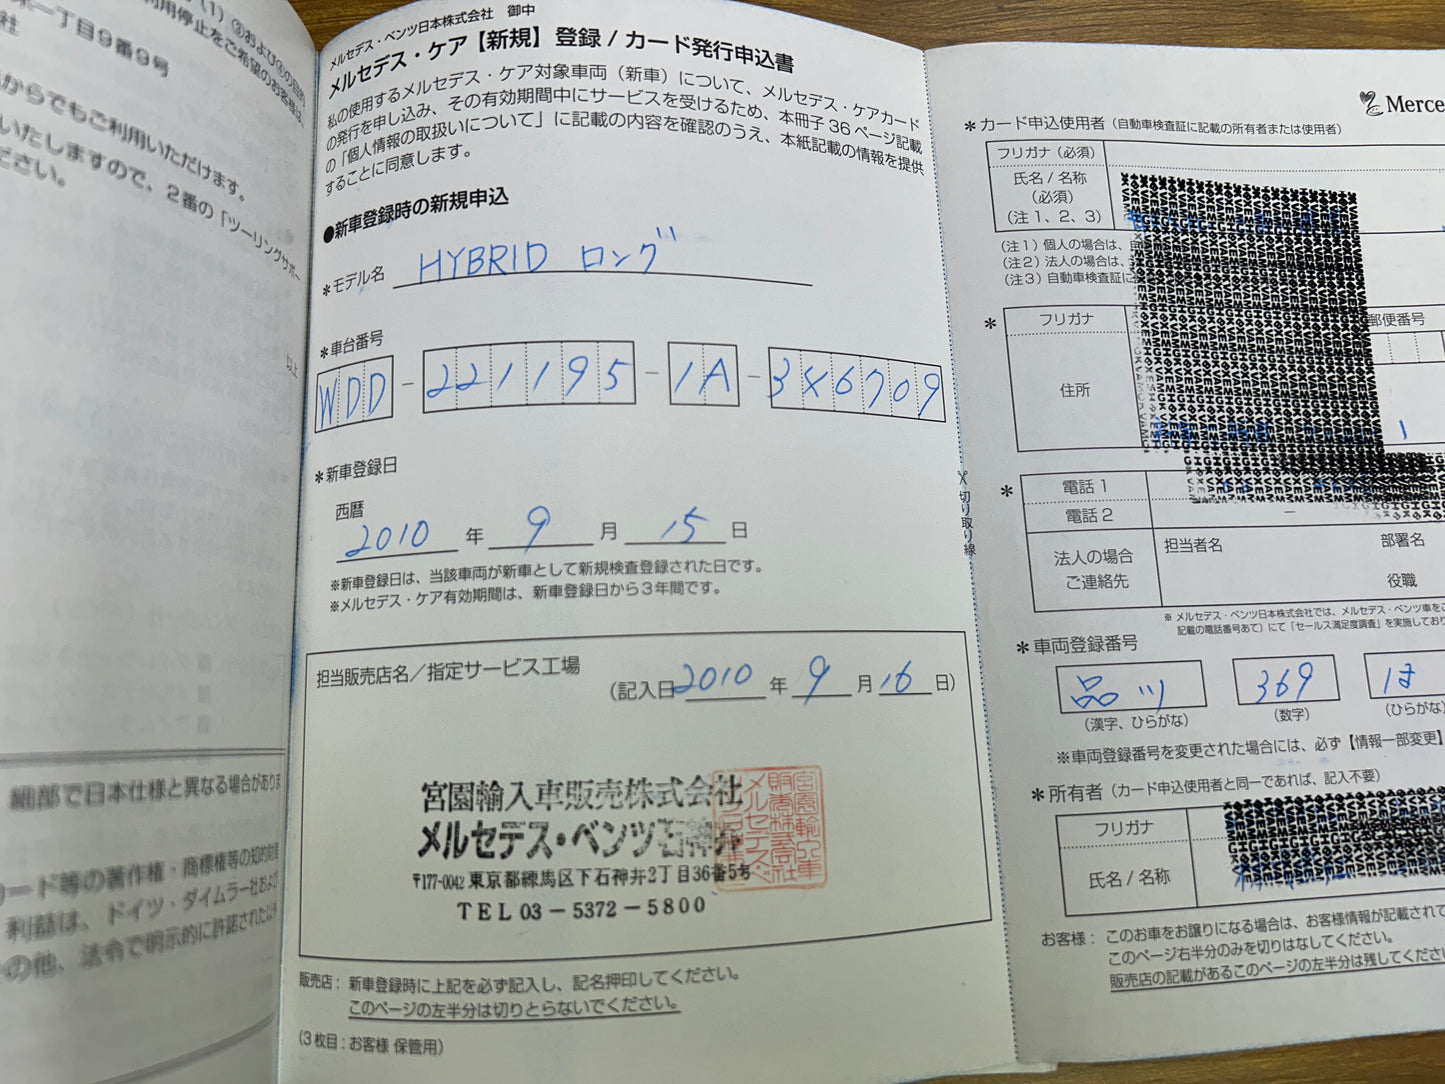 (1) ③および④の目的
利用停止をご希望のお客様は、
一丁目9番9号
社
からでもご利用いただけます。
いたしますので、2番の「ツーリングサポー
ださい。
以上
細部で日本仕様と異なる場合がありま
カード等の著作権・商標権等の知的財産
利益は、ドイツ・ダイムラー社および
その他、法令で明示的に許諾された以外
メルセデス・ベンツ日本株式会社 御中
メルセデス・ケア【新規】登録 / カード発行申込書
私の使用するメルセデス・ケア対象車両（新車）について、メルセデス・ケアカード
の発行を申し込み、その有効期間中にサービスを受けるため、本冊子 36 ページ記載
の「個人情報の取扱いについて」に記載の内容を確認のうえ、本紙記載の情報を提供
することに同意します。
●新車登録時の新規申込
＊モデル名 HYBRID ロング
＊車台番号
WDD - 221195 - 1A - 3X6709
＊新車登録日
西暦
2010 年 9 月 15 日
※新車登録日は、当該車両が新車として新規検査登録された日です。
※メルセデス・ケア有効期間は、新車登録日から３年間です。
担当販売店名／指定サービス工場
（記入日 2010 年 9 月 16 日）
宮園輸入車販売株式会社
メルセデス・ベンツ石神井
〒177-0042 東京都練馬区下石神井2丁目36番5号
TEL 03－5372－5800
販売店： 新車登録時に上記を必ず記入し、記名押印してください。
このページの左半分は切りとらないでください。
（３枚目：お客様 保管用）
切り取り線
Merce
＊カード申込使用者（自動車検査証に記載の所有者または使用者）
フリガナ（必須）
氏名 / 名称
（必須）
（注１、２、３）
（注１）個人の場合は、
（注２）法人の場合は、
（注３）自動車検査証に
＊ フリガナ
郵便番号
住所
＊ 電話１
電話２
法人の場合
ご連絡先
担当者名
部署名
役職
※ メルセデス・ベンツ日本株式会社では、メルセデス・ベンツ車をご
記載の電話番号あて）にて「セールス満足度調査」を実施しており
＊車両登録番号
品川 369 は
（漢字、ひらがな） （数字） （ひらがな）
※車両登録番号を変更された場合には、必ず【情報一部変更】
＊所有者（カード申込使用者と同一であれば、記入不要）
フリガナ
氏名 / 名称
お客様： このお車をお譲りになる場合は、お客様情報が記載されて
このページ右半分のみを切りはなしてください。
販売店の記載があるこのページの左半分は残してください